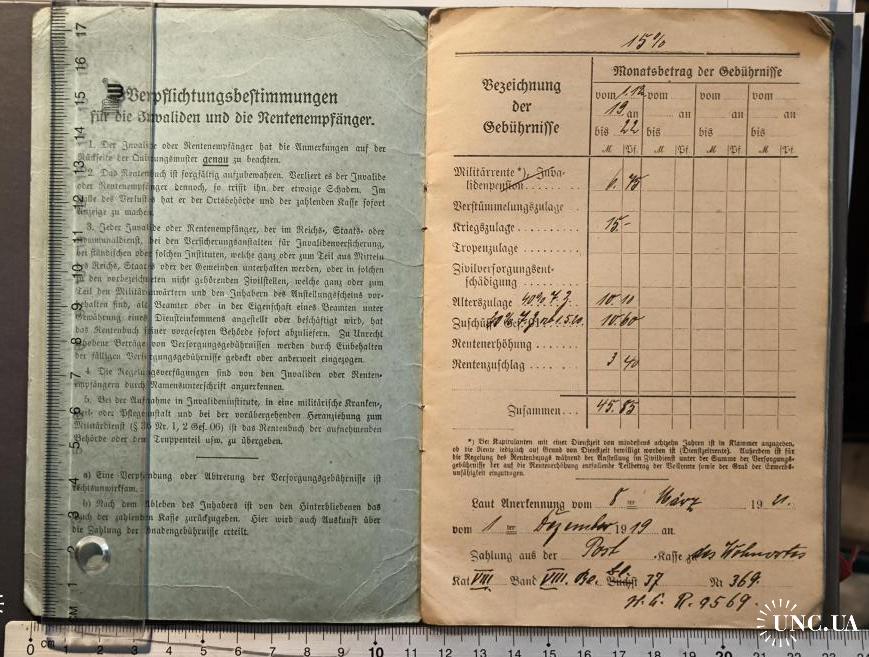 Verpflichtungsbestimmungen
für die Invaliden und die Rentenempfänger.
1. Der Invalide oder Rentenempfänger hat die Anmerkungen auf der
Rückseite der Quittungsmuster genau zu beachten.
2. Das Rentenbuch ist sorgfältig aufzubewahren. Verliert es der Invalide
oder Rentenempfänger dennoch, so trifft ihn der etwaige Schaden. Im
Falle des Verlustes hat er der Ortsbehörde und der zahlenden Kasse sofort
Anzeige zu machen.
3. Jeder Invalide oder Rentenempfänger, der im Reichs-, Staats- oder
Kommunaldienst, bei den Versicherungsanstalten für Invalidenversicherung,
bei ständischen oder solchen Instituten, welche ganz oder zum Teil aus Mitteln
des Reichs, Staates oder der Gemeinden unterhalten werden, oder in solchen
zu den vorbezeichneten nicht gehörenden Zivilstellen, welche ganz oder zum
Teil den Militäranwärtern und den Inhabern des Anstellungsscheins vor-
behalten sind, als Beamter oder in der Eigenschaft eines Beamten unter
Gewährung eines Diensteinkommens angestellt oder beschäftigt wird, hat
das Rentenbuch seiner vorgesetzten Behörde sofort abzuliefern. Zu Unrecht
erhobene Beträge von Versorgungsgebührnissen werden durch Einbehalten
der fälligen Versorgungsgebührnisse gedeckt oder anderweit eingezogen.
4. Die Regelungsverfügungen sind von den Invaliden oder Renten-
empfängern durch Namensunterschrift anzuerkennen.
5. Bei der Aufnahme in Invalideninstitute, in eine militärische Kranken-,
Heil- oder Pflegeanstalt und bei der vorübergehenden Heranziehung zum
Militärdienst (§ 36 Nr. 1, 2 Ges. 06) ist das Rentenbuch der aufnehmenden
Behörde oder dem Truppenteil usw. zu übergeben.
a) Eine Verpfändung oder Abtretung der Versorgungsgebührnisse ist
rechtsunwirksam.
b) Nach dem Ableben des Inhabers ist von den Hinterbliebenen das
Buch der zahlenden Kasse zurückzugeben. Hier wird auch Auskunft über
die Zahlung der Gnadengebührnisse erteilt.
15%
Bezeichnung
der
Gebührnisse
Monatsbetrag der Gebührnisse
vom 1.12. vom vom vom
19 an an an an
bis 22 bis bis bis
M Pf. M Pf. M Pf. M Pf.
Militärrente*), Inva-
lidenpension 6. 75
Verstümmelungszulage
Kriegszulage 15.-
Tropenzulage
Zivilversorgungsent-
schädigung
Alterszulage 40% 10.10
10.60
Rentenerhöhung
Rentenzuschlag 3 40
Zusammen 45.85
*) Bei Kapitulanten mit einer Dienstzeit von mindestens achtzehn Jahren ist in Klammer anzugeben,
ob die Rente lediglich auf Grund von Dienstzeit bewilligt worden ist (Dienstzeitrente). Außerdem ist für
die Regelung des Rentenbezugs während der Anstellung im Zivildienst unter der Summe der Versorgungs-
gebührnisse der auf die Rentenerhöhung entfallende Teilbetrag der Vollrente sowie der Grad der Erwerbs-
unfähigkeit einzutragen.
Laut Anerkennung vom 8ten März 1921.
vom 1ten Dezember 1919 an.
Zahlung aus der Post-Kasse des Wohnortes
Kat VIII Band VIII. Be. Buchst 37 Nr 369.
R. 9569.
UNC.UA
cm